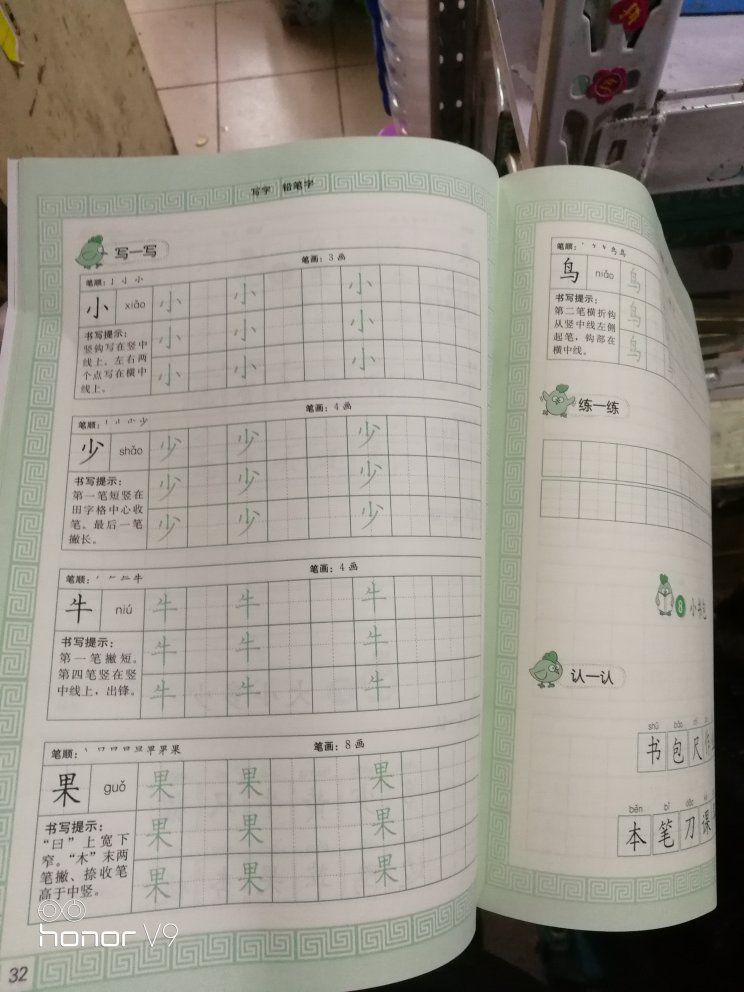 写字 铅笔字
写一写
笔顺：亅 小 小
笔画：3画
小 xiǎo 小 小 小
小 小 小
小 小 小
书写提示：
竖钩写在竖中
线上。左右两
个点写在横中
线上。
笔画：4画
少 shǎo 少 少 少
少 少 少
少 少 少
书写提示：
第一笔短竖在
田字格中心收
笔。最后一笔
撇长。
笔画：4画
牛 niú 牛 牛 牛
牛 牛 牛
牛 牛 牛
书写提示：
第一笔撇短。
第四笔竖在竖
中线上，出锋。
笔画：8画
果 guǒ 果 果 果
果 果 果
果 果 果
书写提示：
“曰”上宽下
窄。“木”末两
笔撇、捺收笔
高于中竖。
32
honor V9
笔顺：
鸟 niǎo 鸟
鸟
鸟
书写提示：
第二笔横折钩
从竖中线左侧
起笔，钩部在
横中线。
练一练
8 小书包
认一认
shū bāo
书 包 尺 作
běn bǐ dāo
本 笔 刀 课